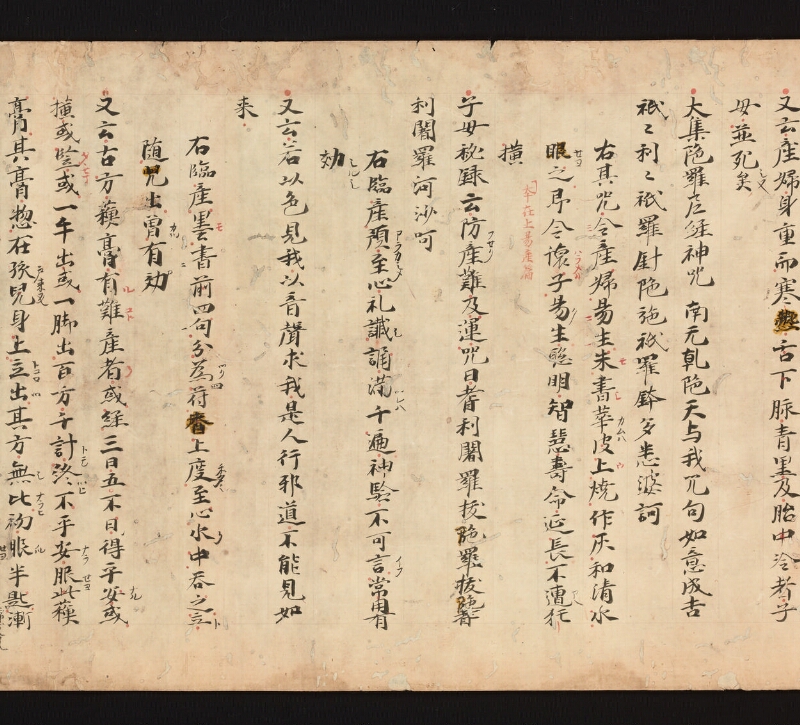 又云産婦身重而寒熱舌下脉青黒及胎中冷者子
母並死矣
大集陁羅尼経神咒 南无乹陁天与我咒句如意成吉
祇々利々祇羅針陁施祇羅鉢多悉婆訶
右其咒令産婦易生朱書華皮上焼作灰和清水
服之即令懐子易生聡明智慧壽命延長不遭狂
横
本在上易産篇
子母秘録云防産難及運咒曰耆利闍羅抜陁羅抜陁耆
利闍羅河沙呵
右臨産預至心礼讖誦満千遍神験不可言常用有
効
又云若以色見我以音聲求我是人行邪道不能見如
来
右臨産墨書前四句分為四符脐上度至心水中吞之立
随児出曽有効
又云古方蘓膏有難産者或経三日五不日得平安或
横或竪或一手出或一脚出百方千計終不平安服此蘓
膏其膏惣在孩児身上立出其方無比初服半匙漸